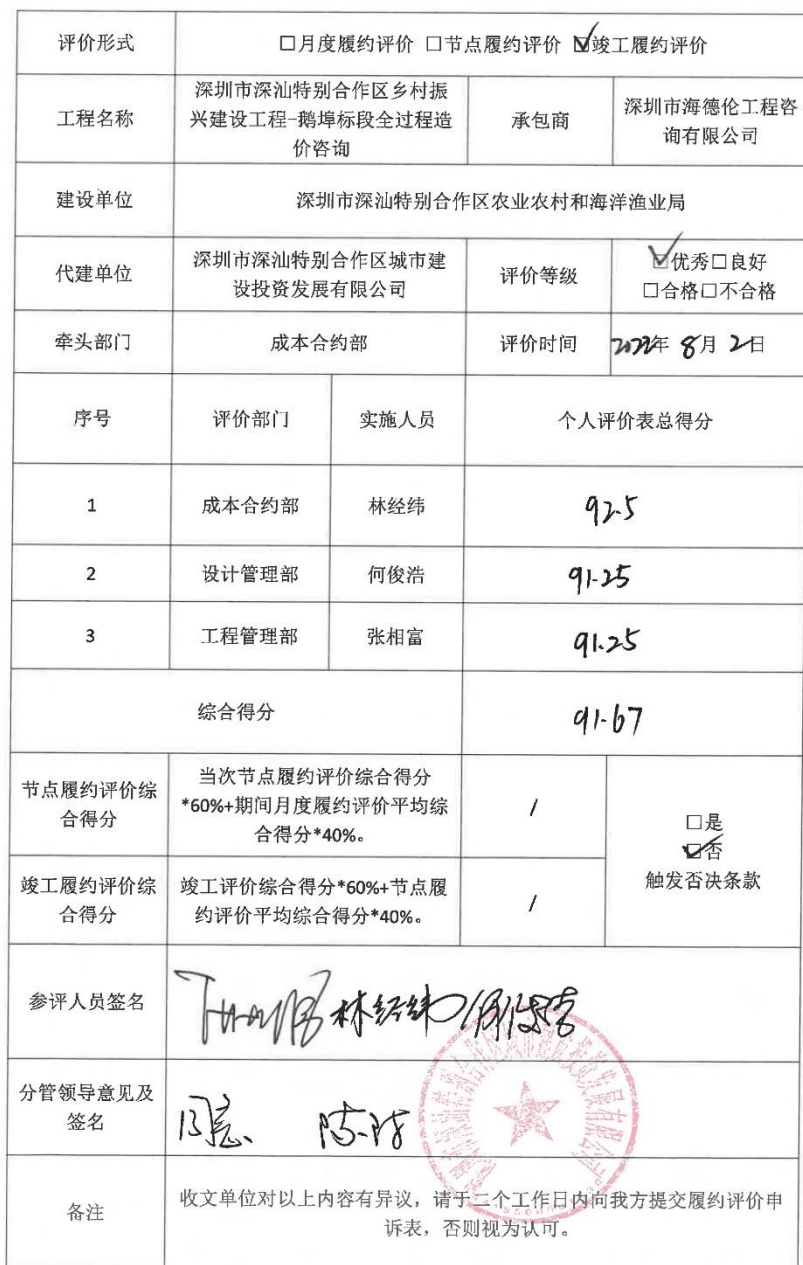 评价形式 □月度履约评价 □节点履约评价 ☑竣工履约评价
工程名称
深圳市深汕特别合作区乡村振
兴建设工程-鹅埠标段全过程造
价咨询
承包商
深圳市海德伦工程咨
询有限公司
建设单位 深圳市深汕特别合作区农业农村和海洋渔业局
代建单位
深圳市深汕特别合作区城市建
设投资发展有限公司
评价等级
☑优秀□良好
□合格□不合格
牵头部门 成本合约部 评价时间 2022年 8月 2日
序号 评价部门 实施人员 个人评价表总得分
1 成本合约部 林经纬 92.5
2 设计管理部 何俊浩 91.25
3 工程管理部 张相富 91.25
综合得分 91.67
节点履约评价综
合得分
当次节点履约评价综合得分
*60%+期间月度履约评价平均综
合得分*40%。
/
竣工履约评价综
合得分
竣工评价综合得分*60%+节点履
约评价平均综合得分*40%。
/
□是
☑否
触发否决条款
参评人员签名 林经纬
分管领导意见及
签名
同意
备注
收文单位对以上内容有异议，请于三个工作日内向我方提交履约评价申
诉表，否则视为认可。